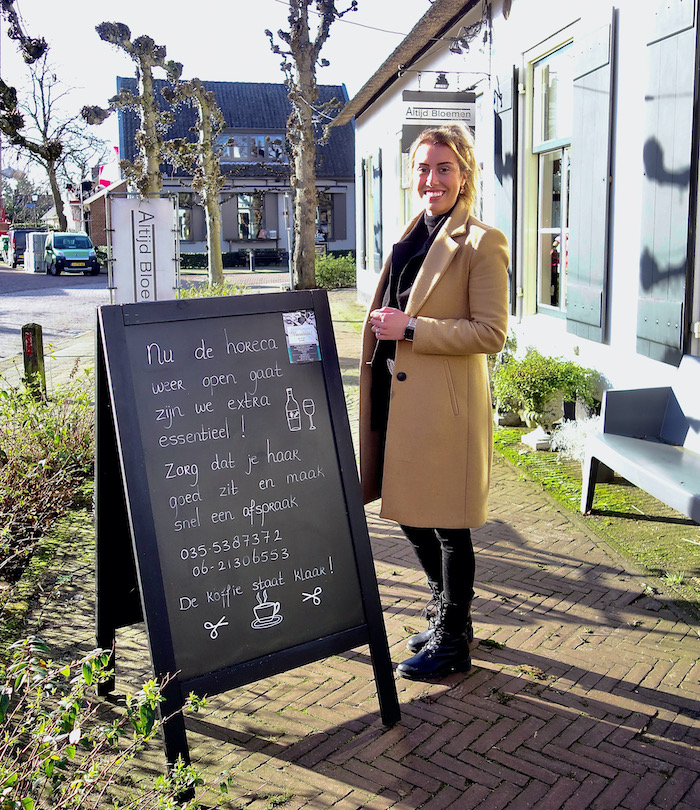 Altijd Bloemen
Altijd Bloe
Nu de horeca
weer open gaat
zijn we extra
essentieel !
Zorg dat je haar
goed zit en maak
snel een afspraak
035-5387372
06-21306553
De koffie staat klaar!